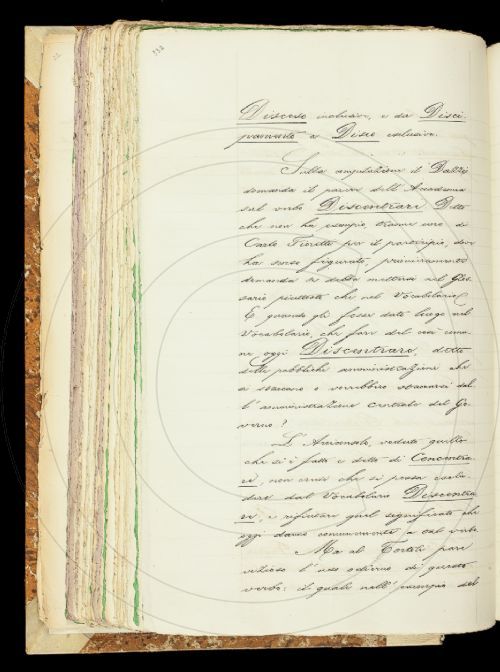 Disceso inclusive, e da Disci-
pamento a Disio esclusive.
Sulla compilazione il Dalzzi
domanda il parere dell'Accademia
sul verbo Discentrare. Detto
che non ha esempio, tranne uno di
Carlo Fioretti per il participio, dove
ha senso figurato, primieramente
domanda se debba mettersi nel Glos-
sario piuttosto che nel Vocabolario.
E quando gli fosse dato luogo nel
Vocabolario, che fare del così comu-
ne oggi Discentrare, detto
delle pubbliche amministrazioni che
si staccano o vorrebbero staccarsi dal-
l'amministrazione centrale del Go-
verno?
L'Arciconsolo, veduto quello
che si è fatto e detto di Concentra-
re, non crede che si possa esclu-
dere dal Vocabolario Discentra-
re, e rifiutare quel significato che
oggi danno comunemente a tal verbo.
Ma al Tortoli pare
vizioso l'uso odierno di questo
verbo: il quale nell'esempio del